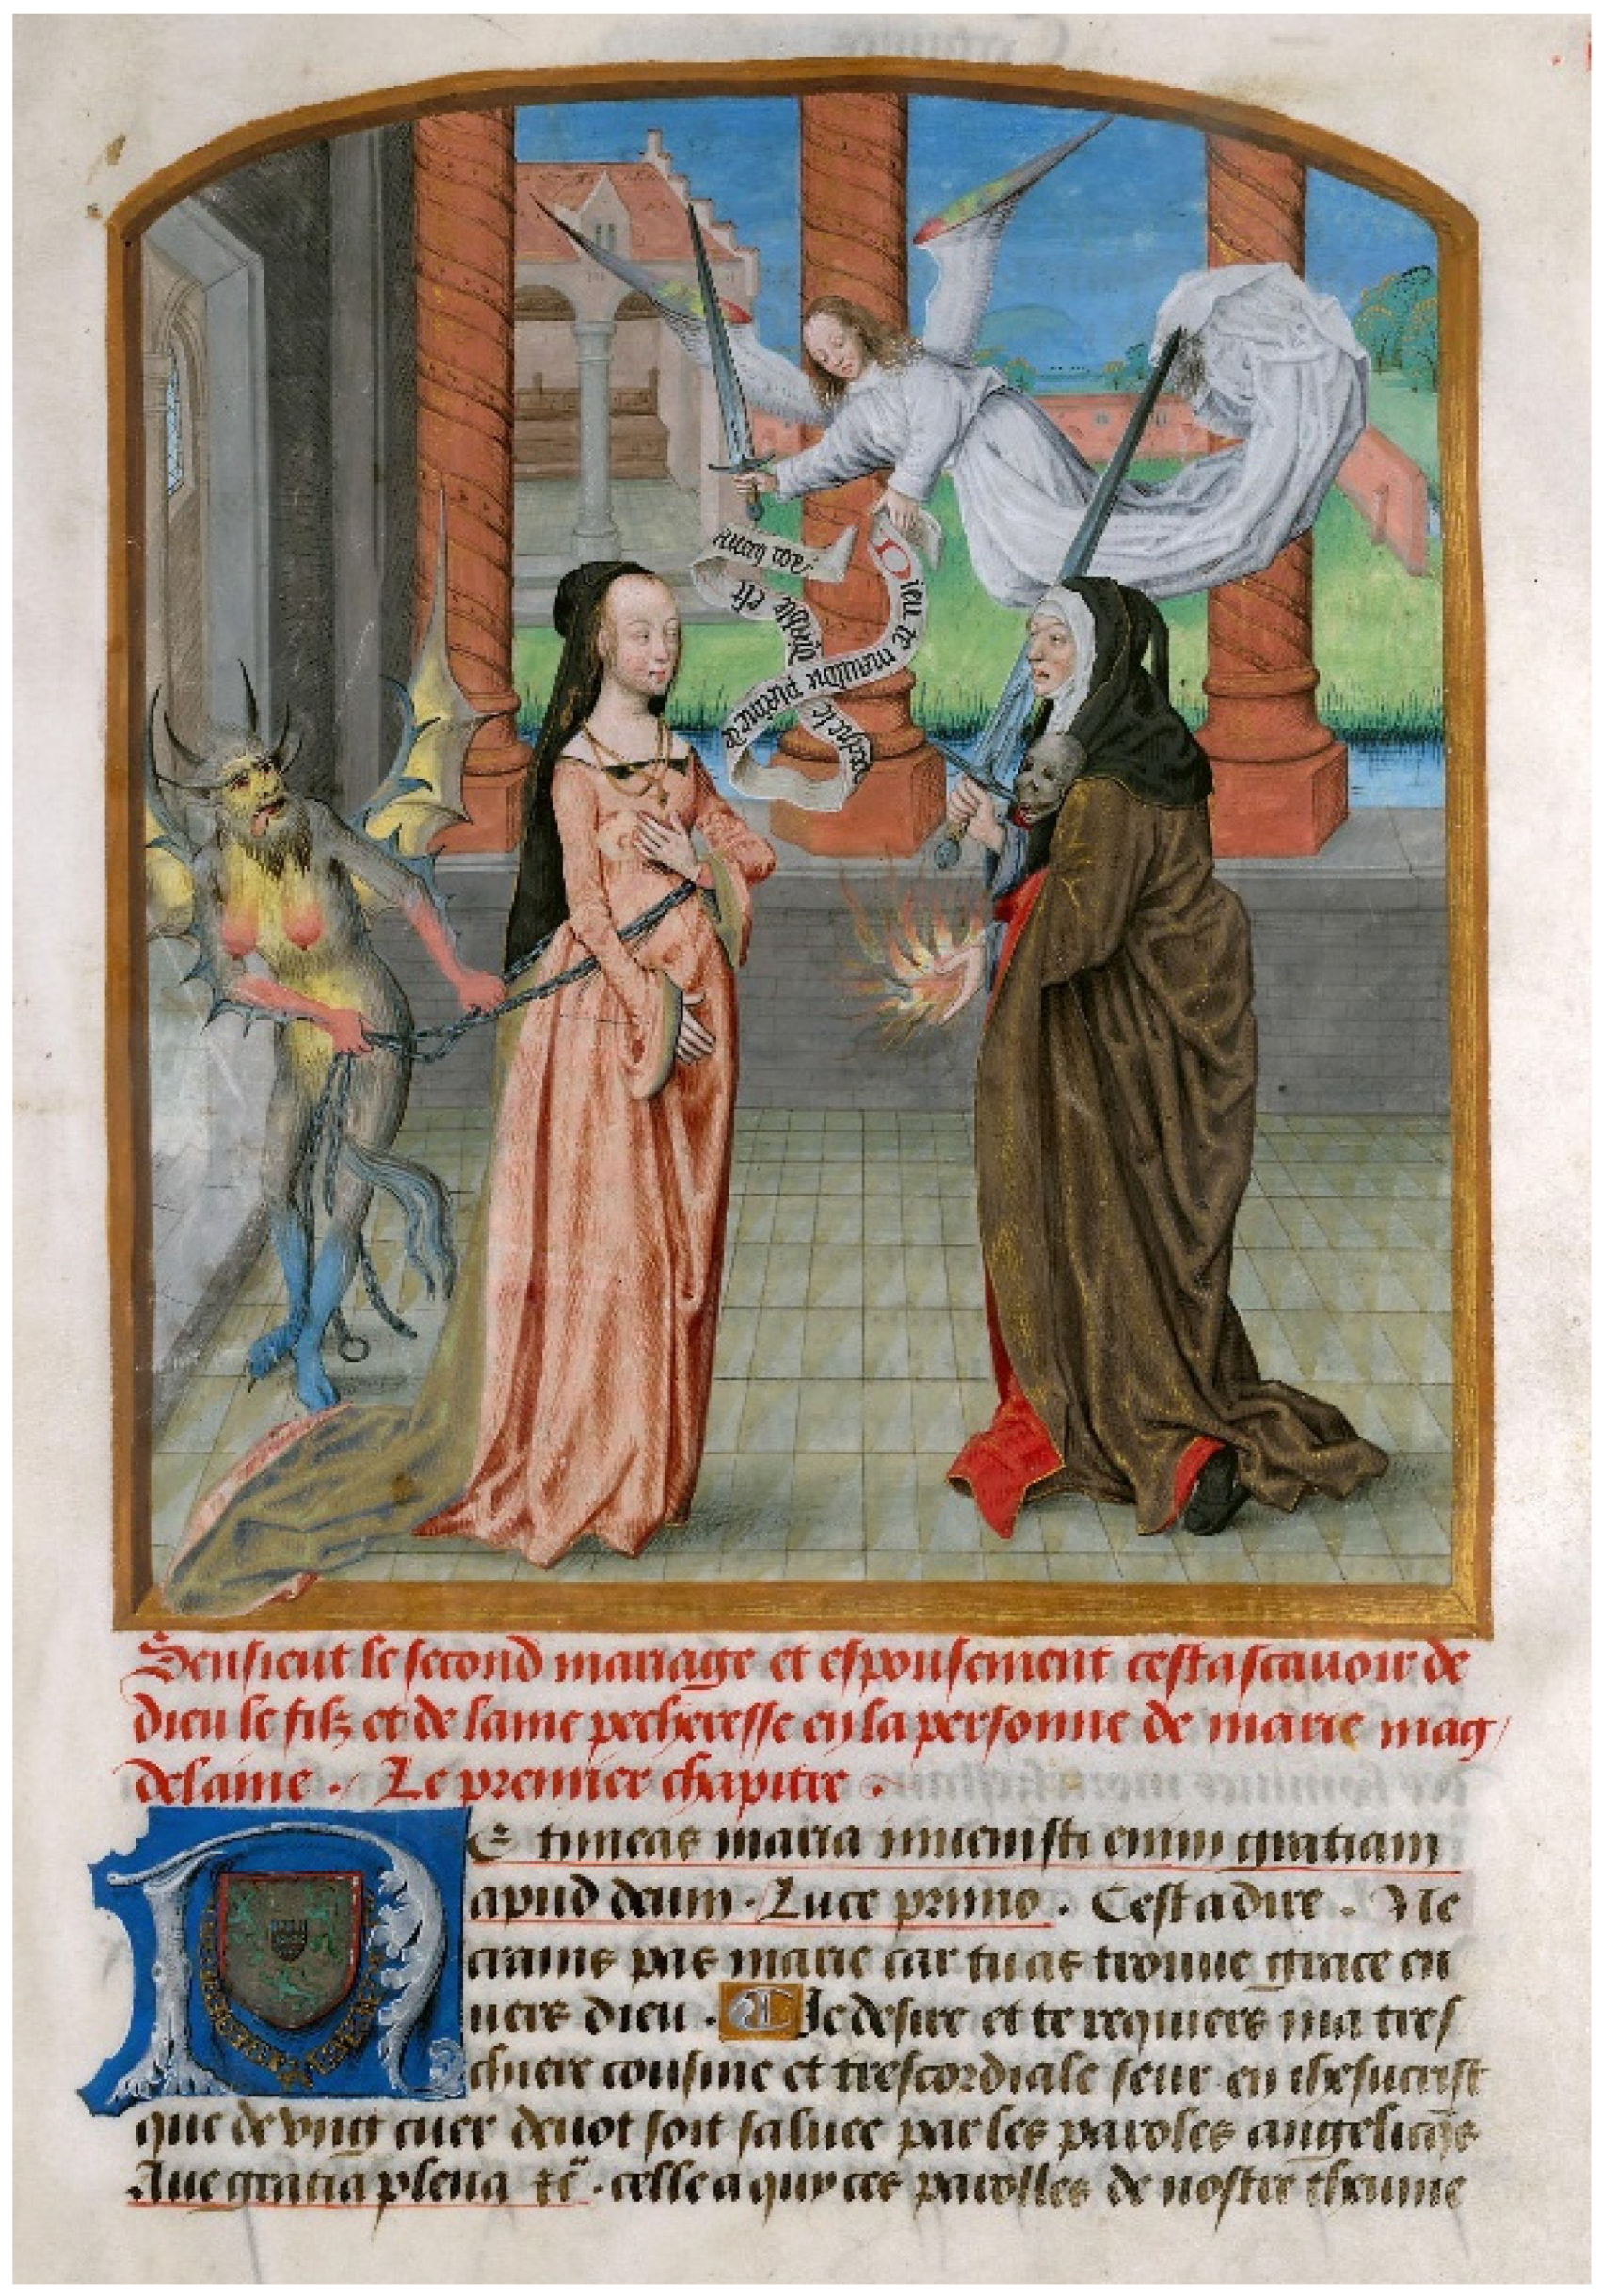 Dieu te mauldie pleine de
pechie le
diable est
avecq toy
Sensieut le second mariage et espousement cestascavoir de
dieu le filz et de lame pecheresse en la personne de marie mag
delaine . Le premier chapitre .
NE timeas maria invenisti enim gratiam
apud deum . Luce primo . Cest a dire . Ne
crains pas marie car tu as trouve grace en
vers dieu . Je desire et te requiers ma tres
chiere cousine et trescordiale seur en ihesucrist
que de ung cuer devot soit saluee par les paroles angelicqs
Ave gratia plena &c . celle a quy ces parolles de nostre theume